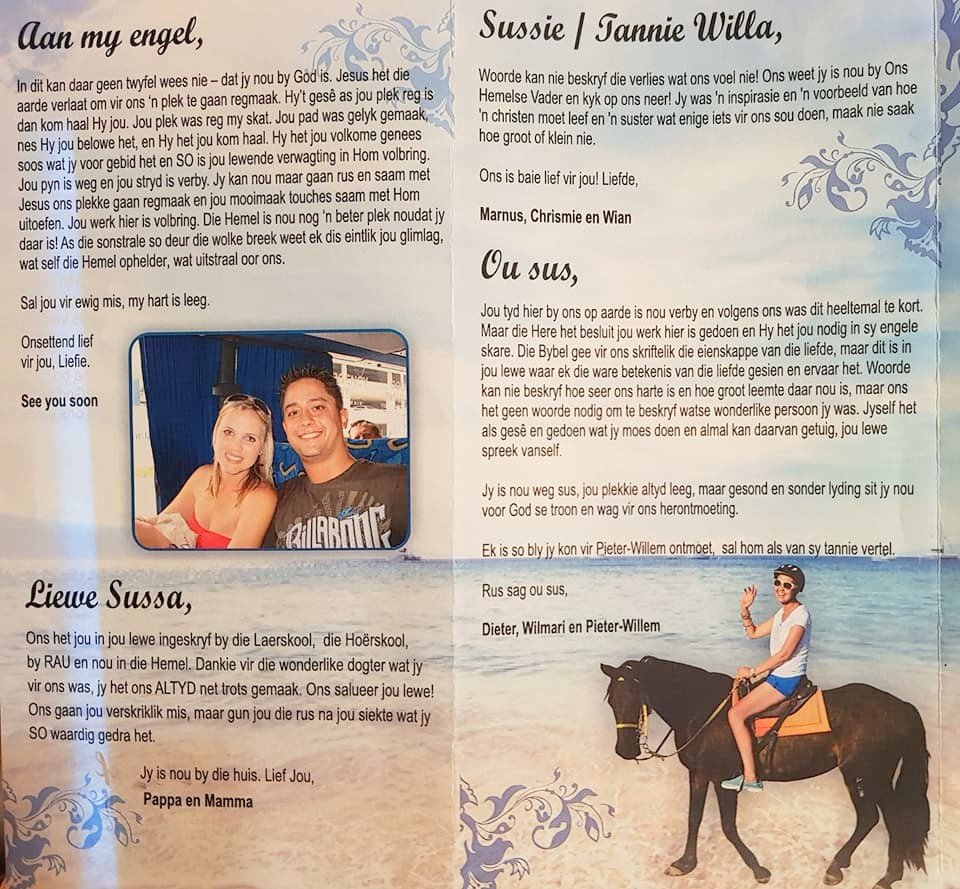 Aan my engel,
In dit kan daar geen twyfel wees nie – dat jy nou by God is. Jesus het die
aarde verlaat om vir ons ‘n plek te gaan regmaak. Hy’t gesê as jou plek reg is
dan kom haal Hy jou. Jou plek was reg my skat. Jou pad was gelyk gemaak,
nes Hy jou belowe het, en Hy het jou kom haal. Hy het jou volkome genees
soos wat jy voor gebid het en SO is jou lewende verwagting in Hom volbring.
Jou pyn is weg en jou stryd is verby. Jy kan nou maar gaan rus en saam met
Jesus ons plekke gaan regmaak en jou mooimaak touches saam met Hom
uitoefen. Jou werk hier is volbring. Die Hemel is nou nog ‘n beter plek noudat jy
daar is! As die sonstrale so deur die wolke breek weet ek dis eintlik jou glimlag,
wat self die Hemel ophelder, wat uitstraal oor ons.
Sal jou vir ewig mis, my hart is leeg.
Onsettend lief
vir jou, Liefie.
See you soon
BILLABONG
Liewe Sussa,
Ons het jou in jou lewe ingeskryf by die Laerskool, die Hoërskool,
by RAU en nou in die Hemel. Dankie vir die wonderlike dogter wat jy
vir ons was, jy het ons ALTYD net trots gemaak. Ons salueer jou lewe!
Ons gaan jou verskriklik mis, maar gun jou die rus na jou siekte wat jy
SO waardig gedra het.
Jy is nou by die huis. Lief Jou,
Pappa en Mamma
Sussie / Tannie Willa,
Woorde kan nie beskryf die verlies wat ons voel nie! Ons weet jy is nou by Ons
Hemelse Vader en kyk op ons neer! Jy was 'n inspirasie en 'n voorbeeld van hoe
'n christen moet leef en 'n suster wat enige iets vir ons sou doen, maak nie saak
hoe groot of klein nie.
Ons is baie lief vir jou! Liefde,
Marnus, Chrismie en Wian
Ou sus,
Jou tyd hier by ons op aarde is nou verby en volgens ons was dit heeltemal te kort.
Maar die Here het besluit jou werk hier is gedoen en Hy het jou nodig in sy engele
skare. Die Bybel gee vir ons skriftelik die eienskappe van die liefde, maar dit is in
jou lewe waar ek die ware betekenis van die liefde gesien en ervaar het. Woorde
kan nie beskryf hoe seer ons harte is en hoe groot leemte daar nou is, maar ons
het geen woorde nodig om te beskryf watse wonderlike persoon jy was. Jyself het
als gesê en gedoen wat jy moes doen en almal kan daarvan getuig, jou lewe
spreek vanself.
Jy is nou weg sus, jou plekkie altyd leeg, maar gesond en sonder lyding sit jy nou
voor God se troon en wag vir ons herontmoeting.
Ek is so bly jy kon vir Pieter-Willem ontmoet, sal hom als van sy tannie vertel.
Rus sag ou sus,
Dieter, Wilmari en Pieter-Willem